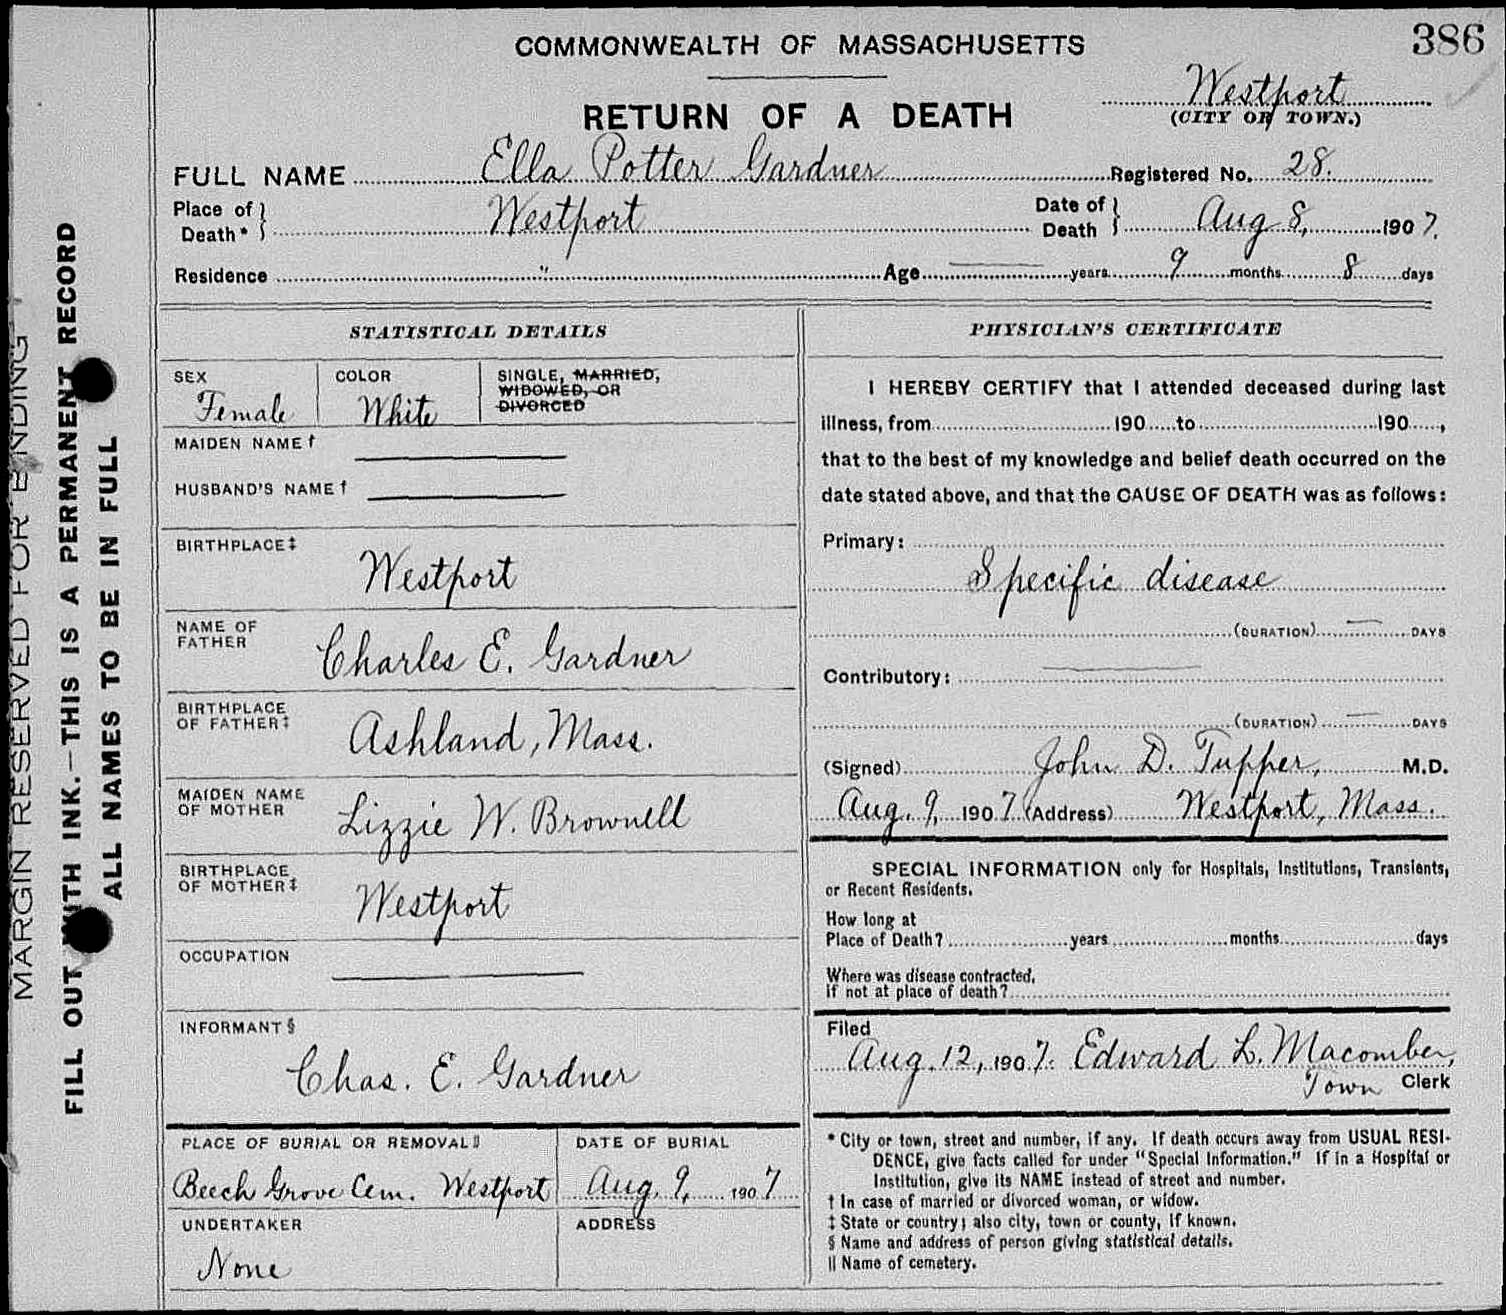 386
COMMONWEALTH OF MASSACHUSETTS
Westport
(CITY OR TOWN.)
RETURN OF A DEATH
FULL NAME Ella Potter Gardner Registered No. 28.
Place of Death* Westport Date of Death Aug 8, 1907.
Residence " Age — years 9 months 8 days
MARGIN RESERVED FOR BINDING
FILL OUT WITH INK.—THIS IS A PERMANENT RECORD
ALL NAMES TO BE IN FULL
STATISTICAL DETAILS
SEX
Female
COLOR
White
SINGLE, MARRIED,
WIDOWED, OR
DIVORCED
MAIDEN NAME †
HUSBAND'S NAME †
BIRTHPLACE ‡
Westport
NAME OF
FATHER
Charles E. Gardner
BIRTHPLACE
OF FATHER ‡
Ashland, Mass.
MAIDEN NAME
OF MOTHER
Lizzie W. Brownell
BIRTHPLACE
OF MOTHER ‡
Westport
OCCUPATION
INFORMANT §
Chas. E. Gardner
PLACE OF BURIAL OR REMOVAL ||
Beech Grove Cem. Westport
DATE OF BURIAL
Aug. 9, 1907
UNDERTAKER
None
ADDRESS
PHYSICIAN'S CERTIFICATE
I HEREBY CERTIFY that I attended deceased during last
illness, from 190 to 190 ,
that to the best of my knowledge and belief death occurred on the
date stated above, and that the CAUSE OF DEATH was as follows:
Primary:
Specific disease
(DURATION) — DAYS
Contributory: —
(DURATION) — DAYS
(Signed) John D. Tupper, M.D.
Aug. 9, 1907 (Address) Westport, Mass.
SPECIAL INFORMATION only for Hospitals, Institutions, Transients,
or Recent Residents.
How long at
Place of Death? years months days
Where was disease contracted,
if not at place of death?
Filed
Aug. 12, 1907. Edward L. Macomber,
Town Clerk
* City or town, street and number, if any. If death occurs away from USUAL RESI-
DENCE, give facts called for under "Special Information." If in a Hospital or
Institution, give its NAME instead of street and number.
† In case of married or divorced woman, or widow.
‡ State or country; also city, town or county, if known.
§ Name and address of person giving statistical details.
|| Name of cemetery.